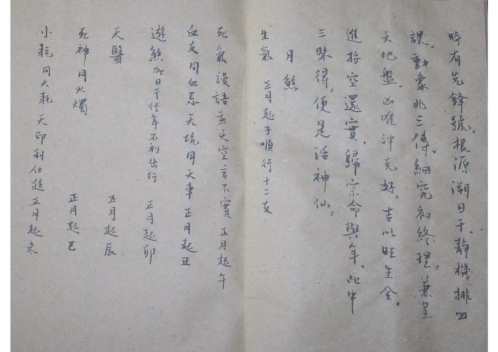 時有先鋒號。根源溯日干。靜機排四
課。動象兆三傳。細究初終理。兼呈
天地盤。凶唯沖克好。吉以旺生全。
進于空還實。歸宗命與年。此中
三昧得。便是活神仙。
月煞
生氣 正月起子順行十二支
死氣謾語主天空言不實 正月起午
血支同血忌天坑同大車 正月起丑
遊煞如日干傳年不利出行 正月起卯
天醫 正月起辰
死神同火燭 正月起巳
小耗同大耗天印利仕進正月起未